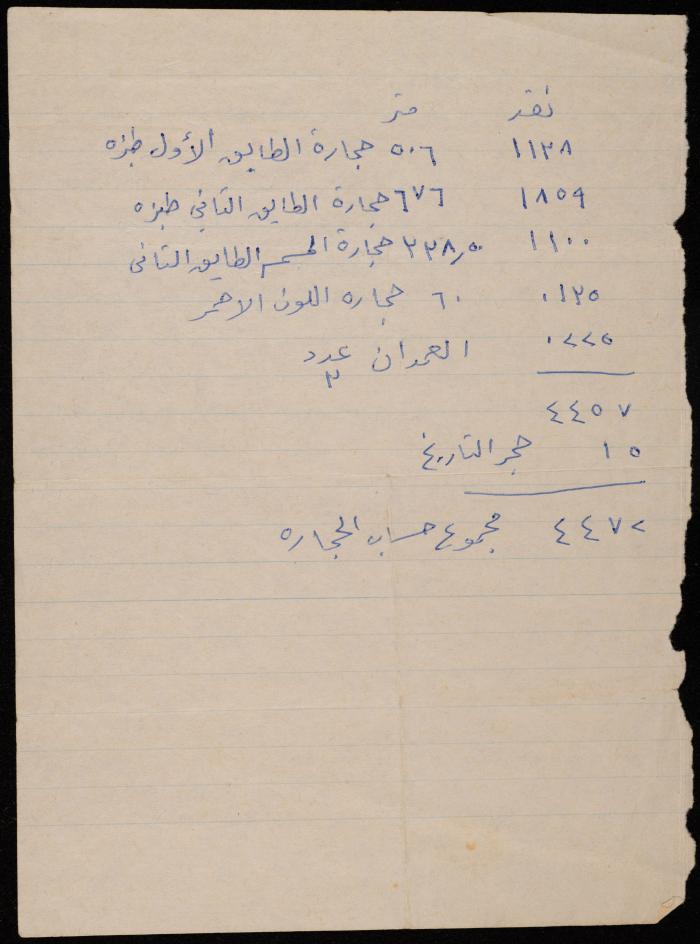 نقد متر
١١٣٨ ٥٠٦ حجارة الطابق الأول طبزه
١٨٥٩ ٦٧٦ حجارة الطابق الثاني طبزه
١١٠٠ ٣٣٨,٥ حجارة المسمسم الطابق الثاني
٠١٣٥ ٦٠ حجاره اللون الاحمر
٠٢٢٥ العمدان عدد ٣
٤٤٥٧
١٥ حجر التاريخ
٤٤٧٢ مجموع حساب الحجاره